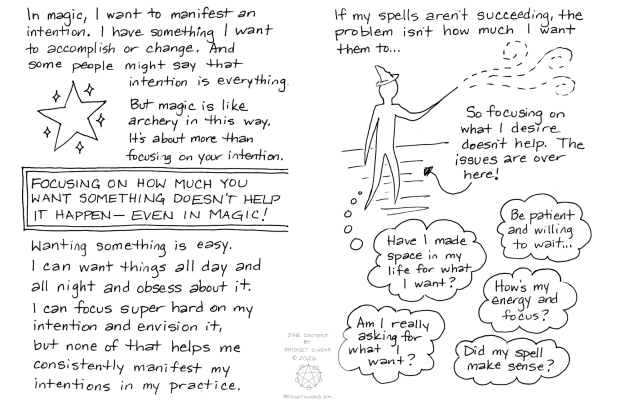 In magic, I want to manifest an
intention. I have something I want
to accomplish or change. And
some people might say that
intention is everything.
But magic is like
archery in this way.
It's about more than
focusing on your intention.
FOCUSING ON HOW MUCH YOU
WANT SOMETHING DOESN'T HELP
IT HAPPEN— EVEN IN MAGIC!
Wanting something is easy.
I can want things all day and
all night and obsess about it.
I can focus super hard on my
intention and envision it,
but none of that helps me
consistently manifest my
intentions in my practice.
ZINE CONTENT
BY
BRIDGET OWENS
© 2026
BRIDGETOWENS.COM
If my spells aren't succeeding, the
problem isn't how much I want
them to...
So focusing on
what I desire
doesn't help. The
issues are over
here!
Have I made
space in my
life for what
I want?
Be patient
and willing
to wait...
How's my
energy and
focus?
Am I really
asking for
what I
want?
Did my spell
make sense?